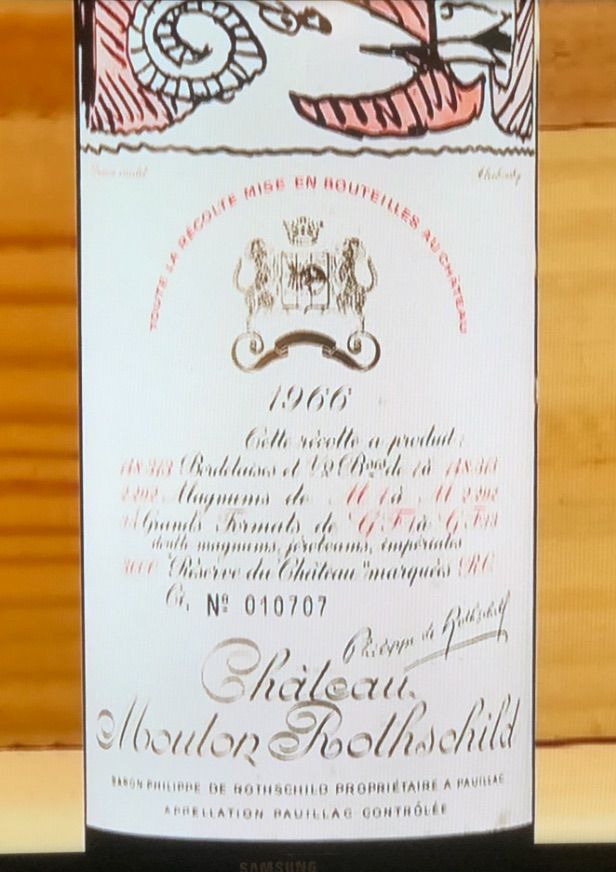 TOUTE LA RÉCOLTE MISE EN BOUTEILLES AU CHÂTEAU
1966
Cette récolte a produit:
148.313 Bordelaises et 1/2 Bses de 1 à 148.313
2.202 Magnums de M 1 à M 2.202
Grands Formats de G F 1 à G F
double magnums, jéroboams, impériales
"Réserve du Château" marqués R.C.
Ci, Nº 010707
Philippe de Rothschild
Château
Mouton Rothschild
BARON PHILIPPE DE ROTHSCHILD PROPRIÉTAIRE A PAUILLAC
APPELLATION PAUILLAC CONTRÔLÉE
SAMSUNG